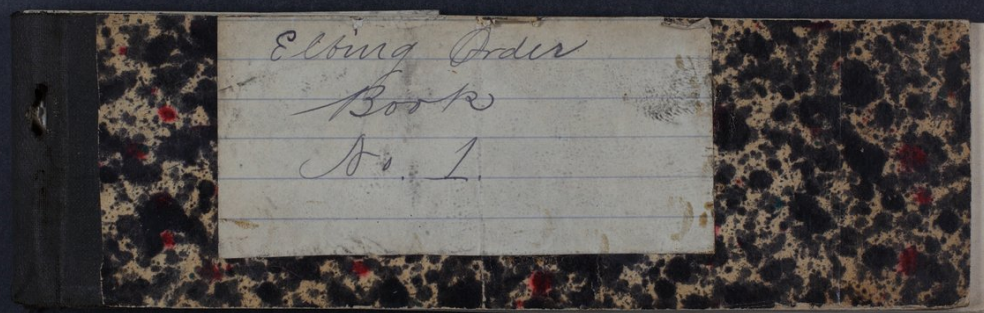 Elbing Order
Book
No. 1.